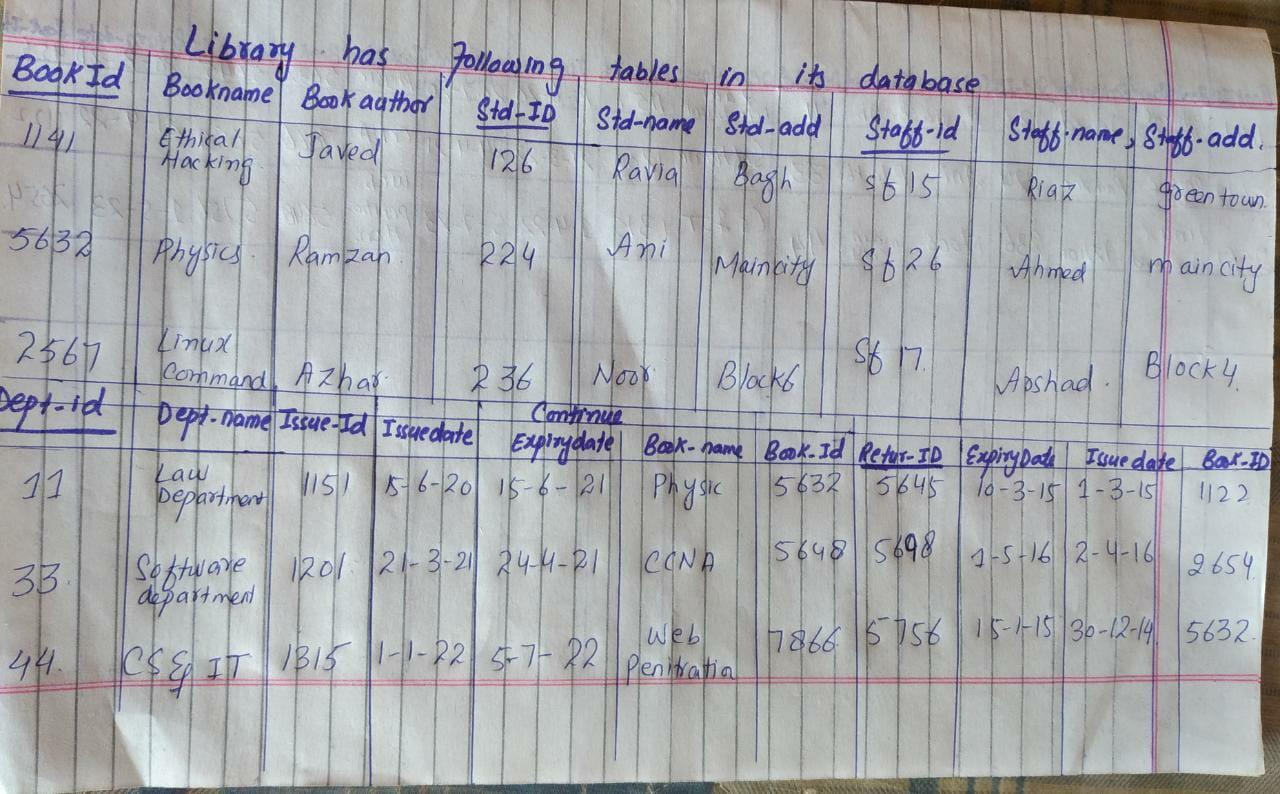 Library has Following tables in its database
BookId Bookname Book author Std-ID Std-name Std-add Staff-id Staff-name, Staff-add.
1141 Ethical Hacking Javed 126 Ravia Bagh Sf 15 Riaz green town
5632 Physics. Ramzan. 224 Ani Maincity Sf 26 Ahmed main city
2567 Linux Command Azhar. 236 Noor Block6 Sf 17. Block 4.
Continue
Dept-id Dept-name Issue-Id Issuedate Expirydate Book-name Book-Id Retur-ID ExpiryDate Issue date Book-ID
11 Law Department 1151 15-6-20 15-6-21 Physic 5632 5645 10-3-15 1-3-15 1122
33. Software department 1201. 21-3-21 24-4-21 CCNA 5648 5698 1-5-16 2-4-16 2654.
44. CS & IT 1315 1-1-22 5-7-22 Web Penitration 7866. 5756 15-1-15 30-12-14 5632.